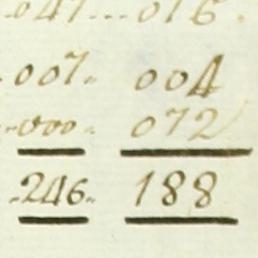 047...016.
.007. 004
..000. 072
.246. 188